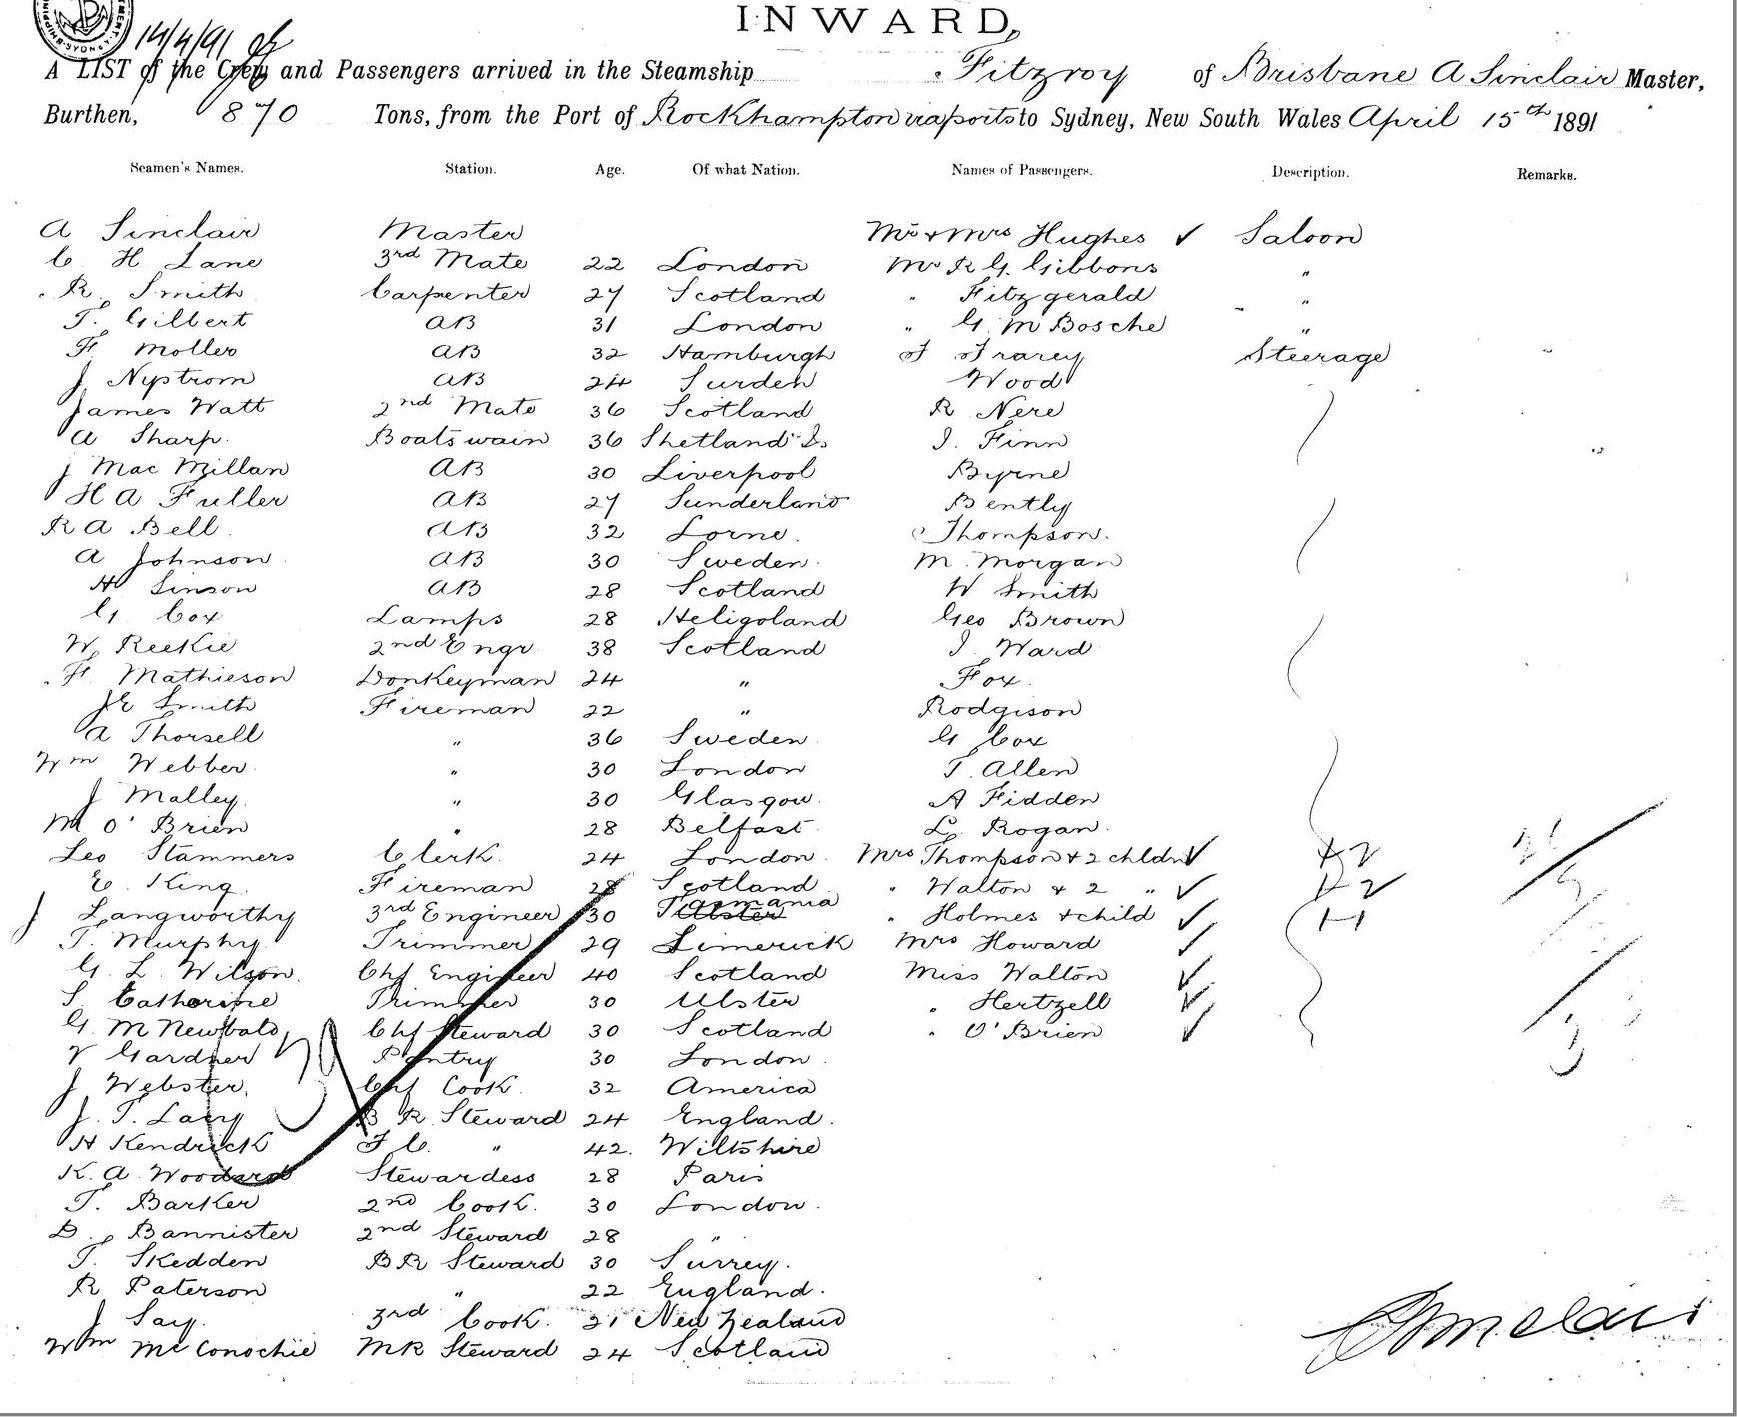 INWARD,
14/4/91
A LIST of the Crew and Passengers arrived in the Steamship Fitzroy of Brisbane A Sinclair Master,
Burthen, 870 Tons, from the Port of Rockhampton via ports to Sydney, New South Wales April 15th 1891
Seamen's Names. Station. Age. Of what Nation. Names of Passengers. Description. Remarks.
A Sinclair Master Mr & Mrs Hughes ✓ Saloon
C H Lane 3rd Mate 22 London Mr R G. Gibbons "
R Smith Carpenter 27 Scotland " Fitzgerald "
T. Gilbert AB 31 London " G M Bosche "
F Moller AB 32 Hamburgh J Tracey Steerage
J Nystrom AB 24 Surden Wood
James Watt 2nd Mate 36 Scotland R Nere
A Sharp. Boatswain 36 Shetland Is J. Finn
J Mac Millan AB 30 Liverpool Byrne
H A Fuller AB 27 Sunderland Bently
R A Bell. AB 32 Lorne. Thompson.
A Johnson AB 30 Sweden. M. Morgan
H Sinson AB 28 Scotland W Smith
G Cox Lamps 28 Heligoland Geo Brown
W Reekie 2nd Engr 38 Scotland J Ward
F Mathieson Donkeyman 24 " Fox.
J E Smith Fireman 22 " Rodgison
A Thorsell " 36 Sweden G Cox
Wm Webber. " 30 London T. Allen
J Malley. " 30 Glasgow. A Fidden
M O'Brien " 28 Belfast L. Rogan.
Leo Stammers Clerk. 24 London. Mrs Thompson & 2 chldn ✓
E. King. Fireman 28 Scotland " Walton & 2 " ✓
J Langworthy 3rd Engineer 30 Tasmania Ulster " Holmes & child ✓
T. Murphy. Trimmer 29 Limerick Mrs Howard ✓
G. L. Wilson. Chf Engineer 40 Scotland Miss Walton ✓
S. Catherine Trimmer 30 Ulster " Hertzell ✓
G. M Newbald Chf Steward 30 Scotland " O'Brien ✓
Gardner Pantry 30 London.
J Webster. Chf Cook. 32 America
J. T. Lacy B R Steward 24 England.
H Kendrick F C. " 42. Wiltshire
K. A. Woodard Stewardess 28 Paris
T. Barker 2nd Cook. 30 London.
D. Bannister 2nd Steward 28 "
T. Skedden BR Steward 30 Surrey.
R Paterson " 22 England.
J Say. 3rd Cook. 21 New Zealand
Wm McConochie MR Steward 24 Scotland